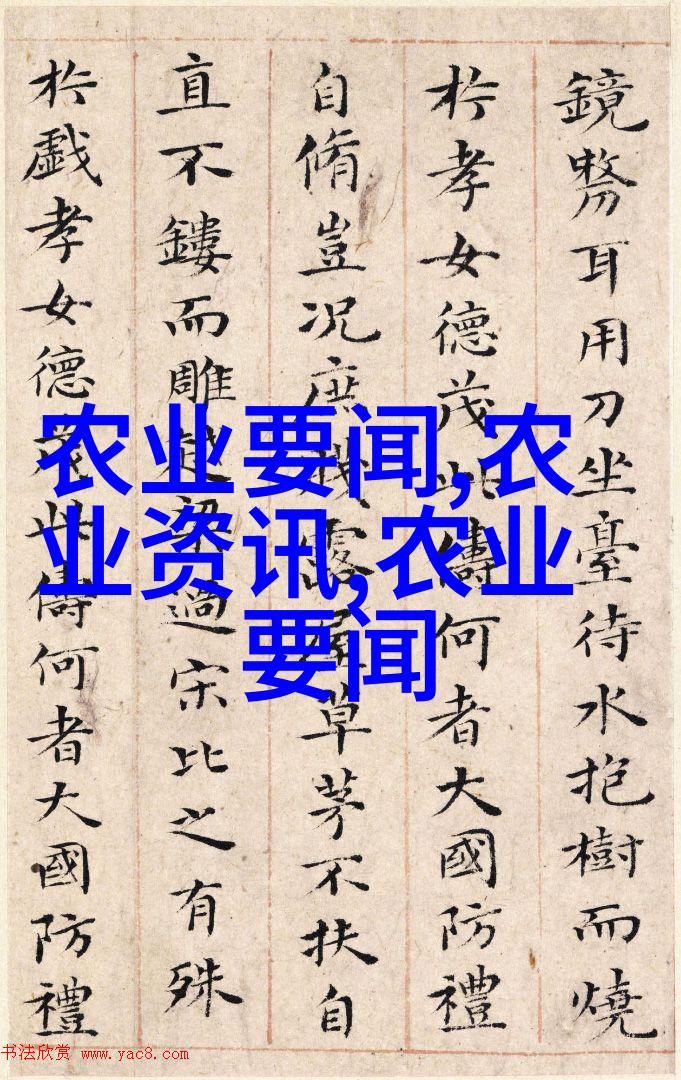 鏡剺耳用刀坐臺待水抱樹而燒
於孝女德茂此儔何者大國防禮
自脩豈況庶賤露屋草茅不扶自
直不鏤而雕越梁過宋比之有殊
於戲孝女德茂此儔何者大國防禮
农业要闻,农
业资讯,农业
要闻
书法欣赏 www.yac8.com